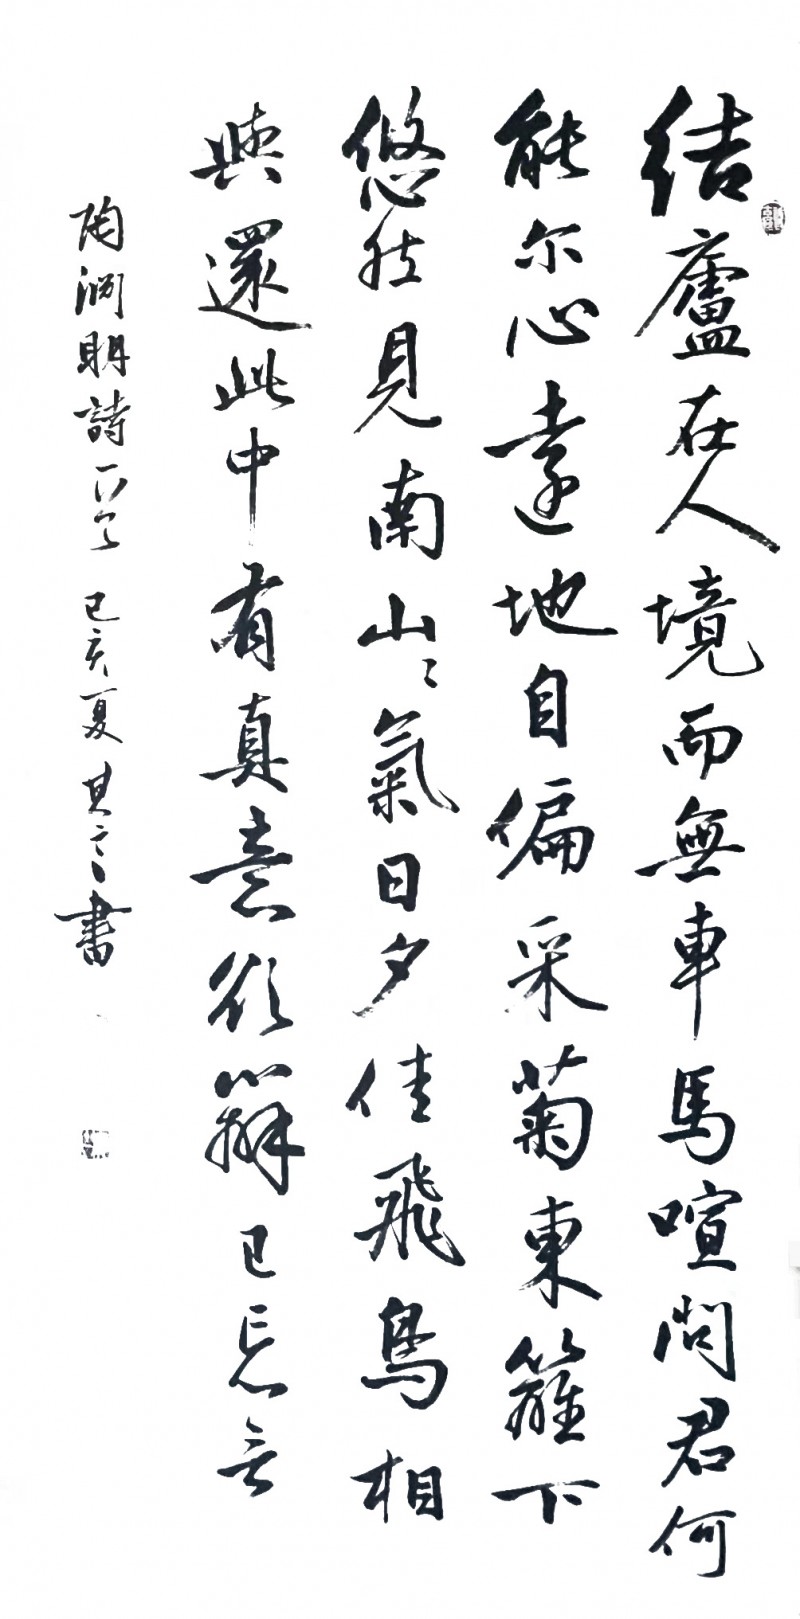 结廬在人境而無車馬喧問君何
能尔心遠地自偏采菊東籬下
悠然見南山山氣日夕佳飛鳥相
與還此中有真意欲辯已忘言
陶渊明詩一首 己亥夏 其之書